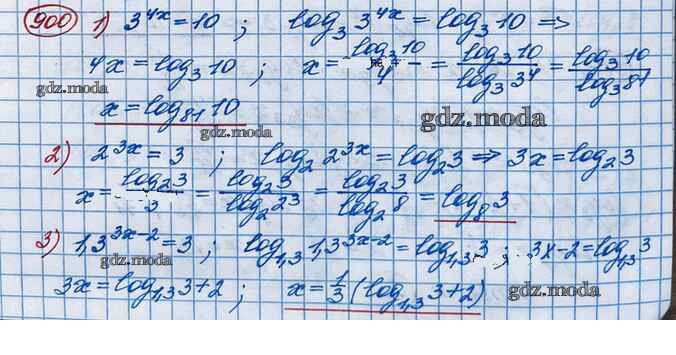 900 1) 3^{4x} = 10 ; log_3 3^{4x} = log_3 10 ⇒
4x = log_3 10 ; x = log_3 10 / 4 = log_3 10 / log_3 3^4 = log_3 10 / log_3 81
gdz.moda
x = log_{81} 10
gdz.moda
gdz.moda
2) 2^{3x} = 3 ; log_2 2^{3x} = log_2 3 ⇒ 3x = log_2 3
x = log_2 3 / 3 = log_2 3 / log_2 2^3 = log_2 3 / log_2 8 = log_8 3
3) 1,3^{3x-2} = 3 ; log_{1,3} 1,3^{3x-2} = log_{1,3} 3 ; 3x-2 = log_{1,3} 3
gdz.moda
3x = log_{1,3} 3 + 2 ; x = 1/3 (log_{1,3} 3 + 2)
gdz.moda